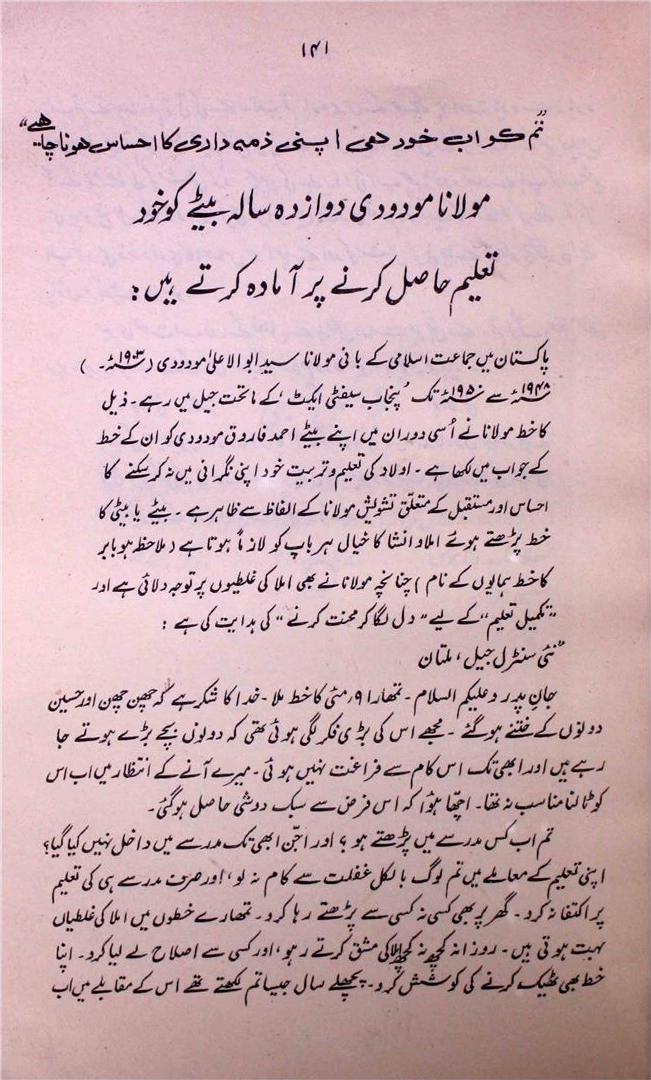 ۱۴۱
”تم کو اب خود ھی اپنی ذمہ داری کا احساس ھونا چاھیے“
مولانا مودودی دوازدہ سالہ بیٹے کو خود
تعلیم حاصل کرنے پر آمادہ کرتے ہیں:
پاکستان میں جماعت اسلامی کے بانی مولانا سید ابو الاعلیٰ مودودی (۱۹۰۳ء۔ )
۱۹۴۸ء سے ۱۹۵۰ء تک ’پنجاب سیفٹی ایکٹ‘ کے ماتحت جیل میں رہے۔ ذیل
کا خط مولانا نے اُسی دوران میں اپنے بیٹے احمد فاروق مودودی کو ان کے خط
کے جواب میں لکھا ہے۔ اولاد کی تعلیم و تربیت خود اپنی نگرانی میں نہ کر سکنے کا
احساس اور مستقبل کے متعلق تشویش مولانا کے الفاظ سے ظاہر ہے۔ بیٹے یا بیٹی کا
خط پڑھتے ہوئے املا و انشا کا خیال ہر باپ کو لازماً ہوتا ہے (ملاحظہ ہو بابر
کا خط ہمایوں کے نام) چنانچہ مولانا نے بھی املا کی غلطیوں پر توجہ دلائی ہے اور
”تکمیل تعلیم“ کے لیے ”دل لگا کر محنت کرنے“ کی ہدایت کی ہے :
”نئی سنٹرل جیل، ملتان
جانِ پدر وعلیکم السلام۔ تمھارا ۹؍ مئی کا خط ملا۔ خدا کا شکر ہے کہ چھن چھن اور حسین
دونوں کے ختنے ہو گئے۔ مجھے اس کی بڑی فکر لگی ہوئی تھی کہ دونوں بچے بڑے ہوتے جا
رہے ہیں اور ابھی تک اس کام سے فراغت نہیں ہوئی۔ میرے آنے کے انتظار میں اب اس
کو ٹالنا مناسب نہ تھا۔ اچھا ہؤا کہ اس فرض سے سبک دوشی حاصل ہو گئی۔
تم اب کس مدرسے میں پڑھتے ہو؟ اور اچّن ابھی تک مدرسے میں داخل نہیں کیا گیا؟
اپنی تعلیم کے معاملے میں تم لوگ بالکل غفلت سے کام نہ لو، اور صرف مدرسے ہی کی تعلیم
پر اکتفا نہ کرو۔ گھر پر بھی کسی نہ کسی سے پڑھتے رہا کرو۔ تمھارے خطوں میں املا کی غلطیاں
بہت ہوتی ہیں۔ روزانہ کچھ نہ کچھ املا کی مشق کرتے رہو، اور کسی سے اصلاح لے لیا کرو۔ اپنا
خط بھی ٹھیک کرنے کی کوشش کرو۔ پچھلے سال جیسا تم لکھتے تھے اس کے مقابلے میں اب